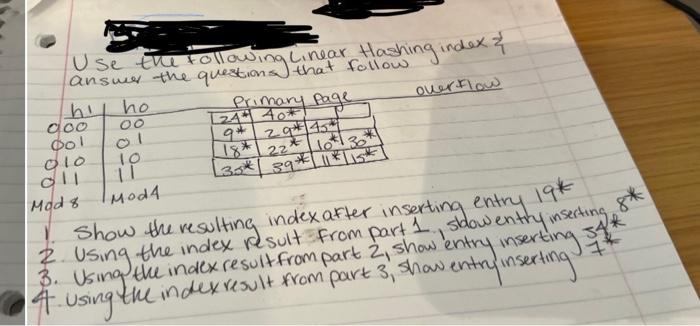 Use the following Linear Hashing index &
answer the questions that follow
h1 h0 Primary Page overflow
000 00 24* 40*
001 01 9* 29* 45*
010 10 18* 22* 10* 30*
011 11 39* 11* 15*
Mod 8 Mod4
1. Show the resulting index after inserting entry 19*
2. Using the index result from part 1, show entry inserting 8*
3. Using the index result from part 2, show entry inserting 34*
4. Using the index result from part 3, show entry inserting 7*